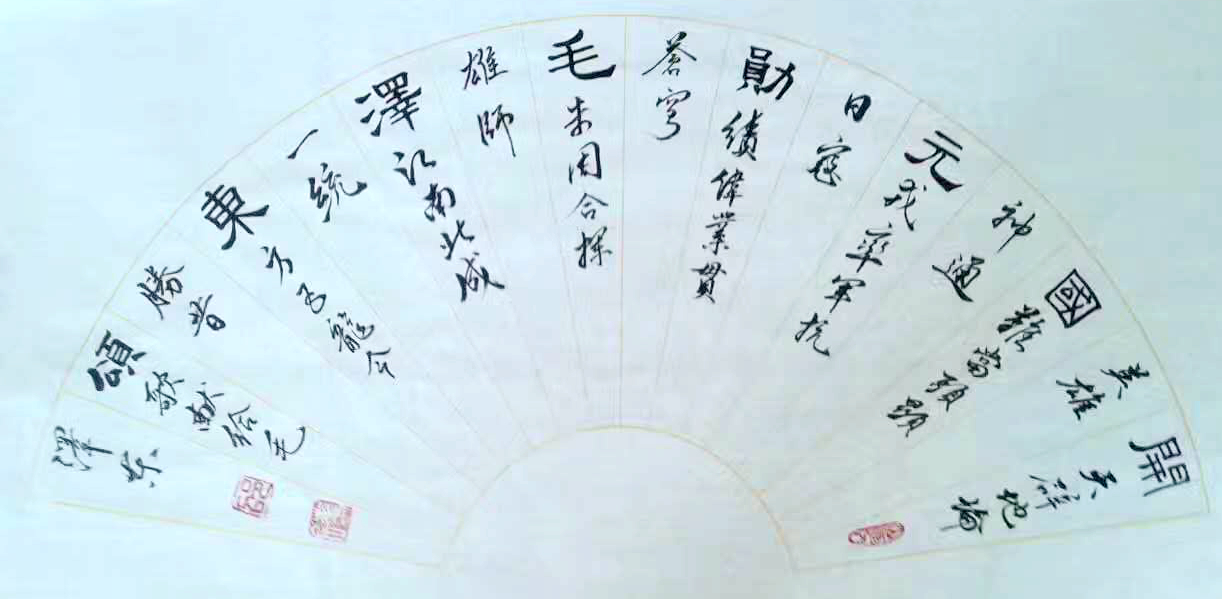 開天辟地掄
英雄
國難當頭顯
神通
元戎率軍抗
日寇
勛績偉業貫
蒼穹
毛朱周合
雄師
澤江南北成
一統
東方巨龍今
勝昔
頌歌献給毛
澤东